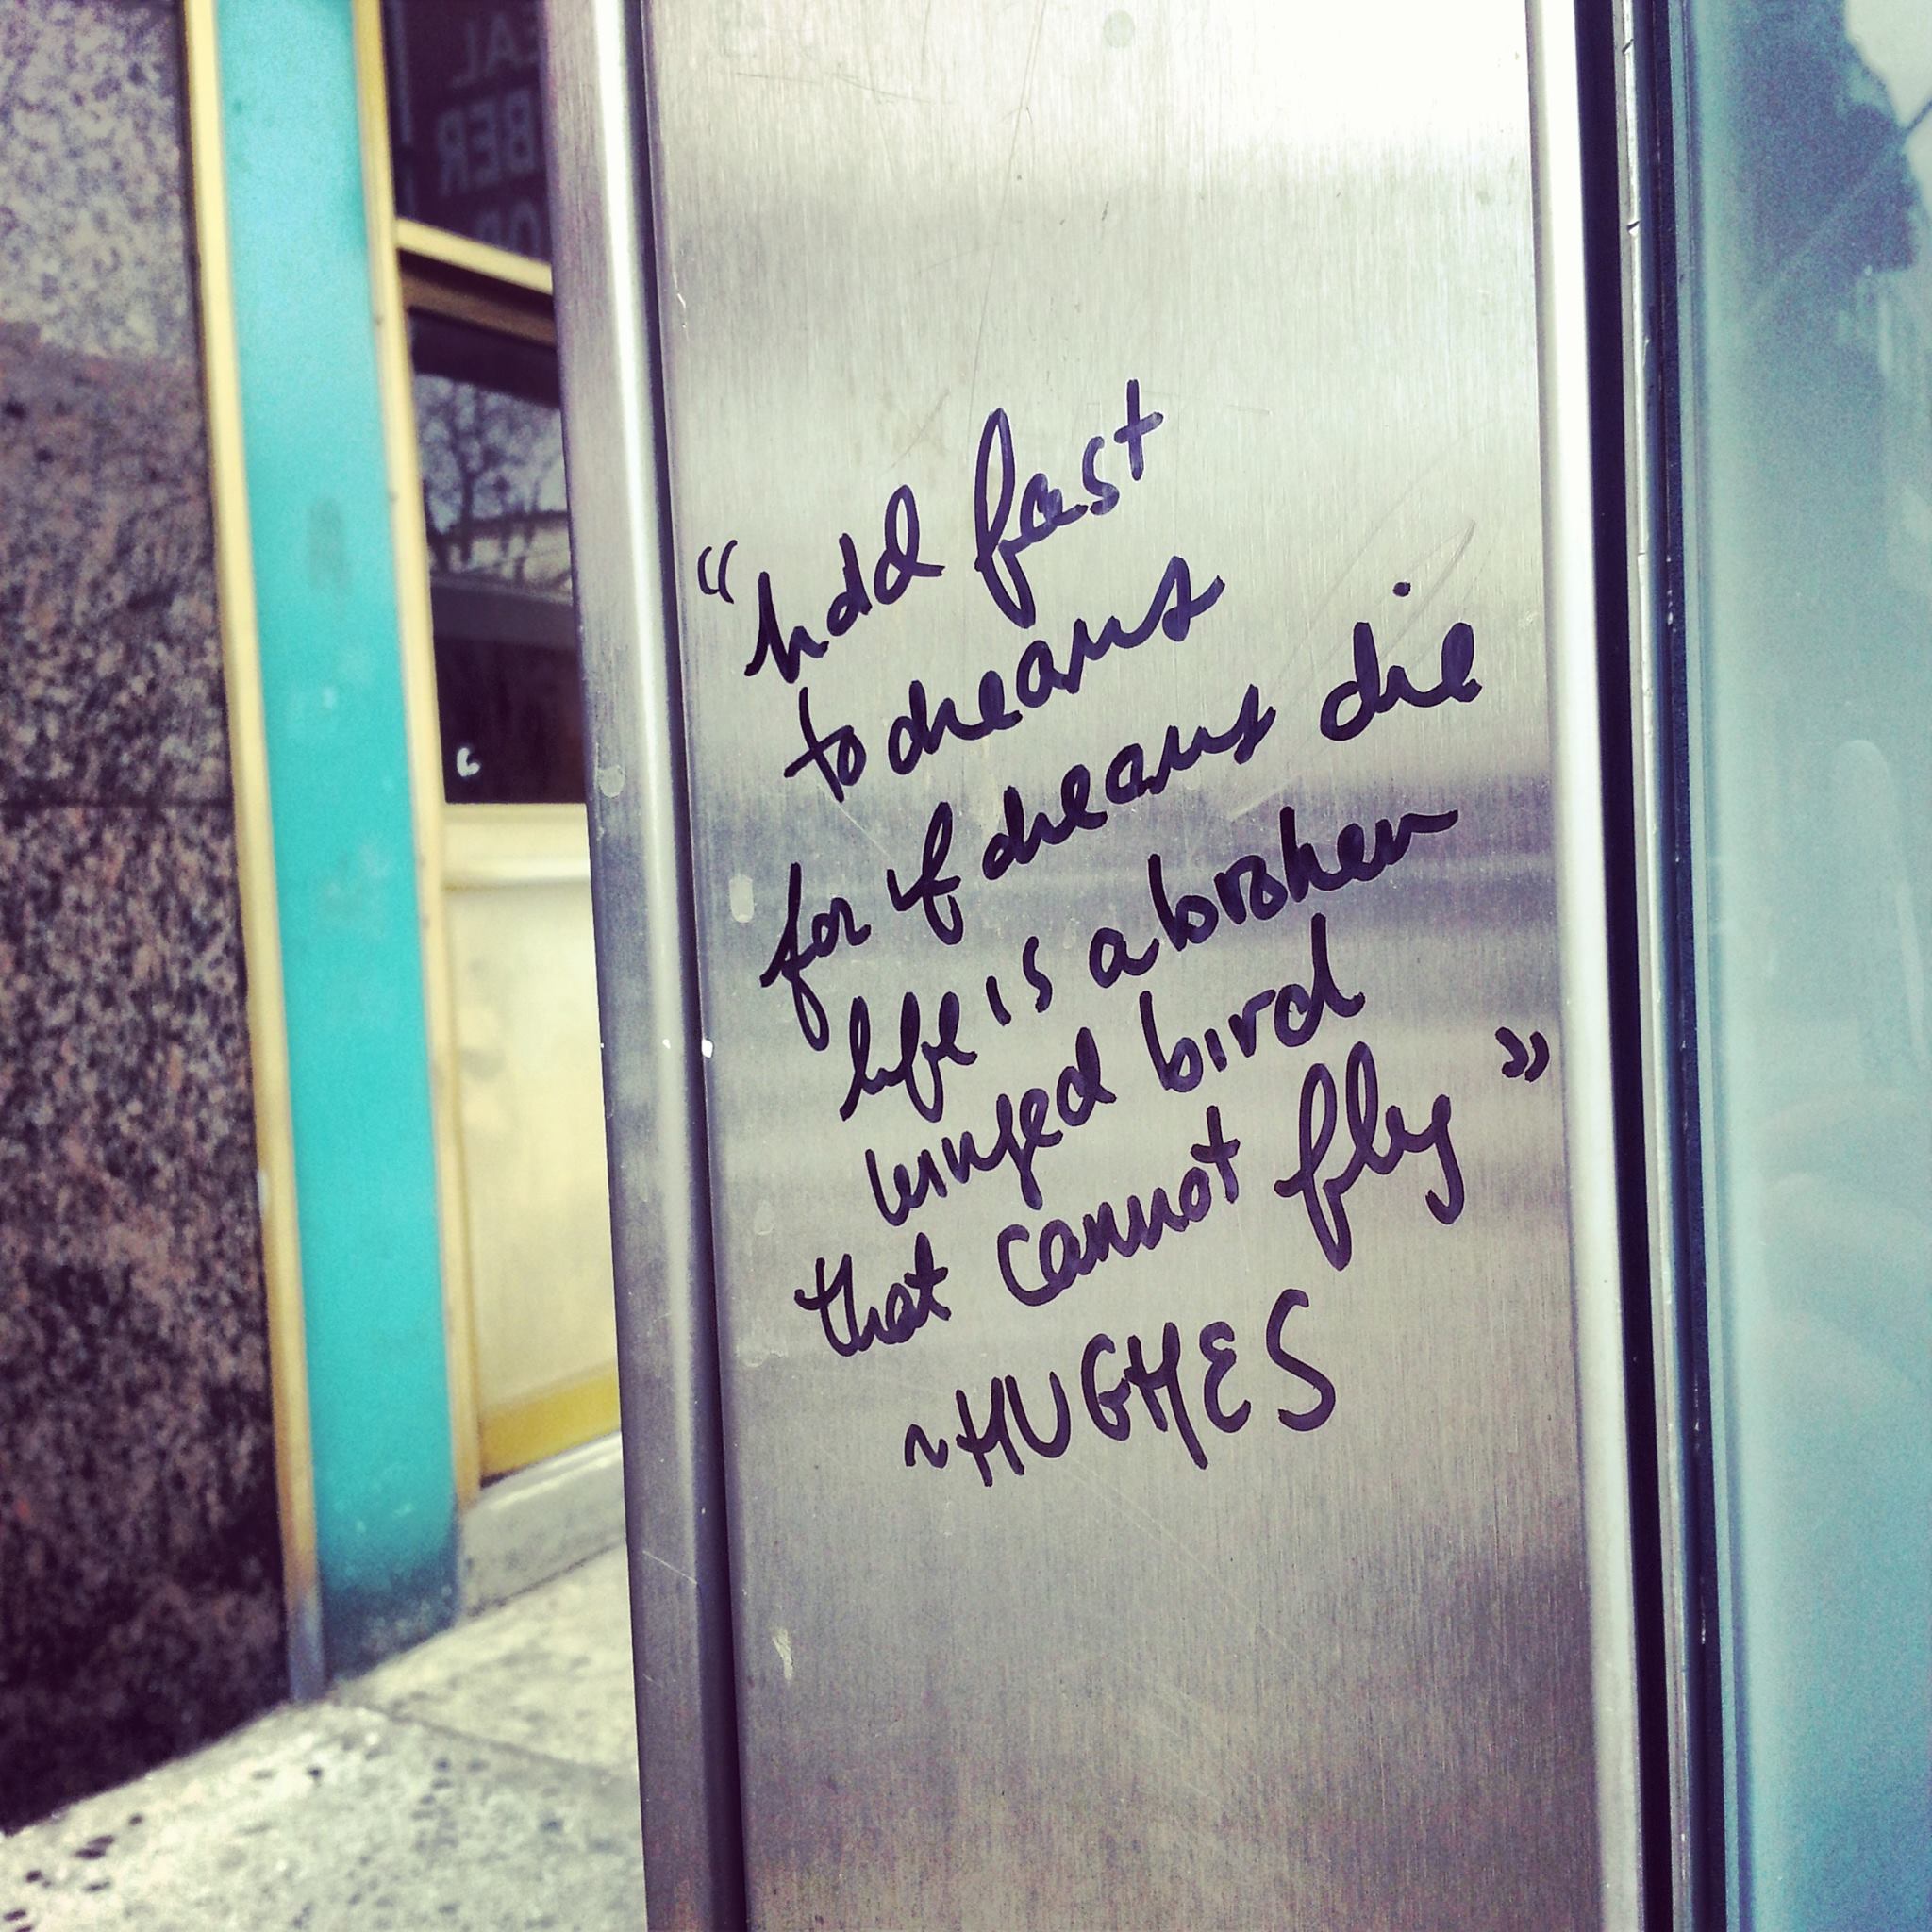 EAL
BER
OP
"hold fast
to dreams
for if dreams die
life is a broken
winged bird
that cannot fly"
~HUGHES